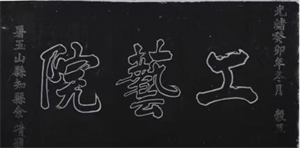 光緒癸卯年冬月
工藝院
署玉山縣知縣余